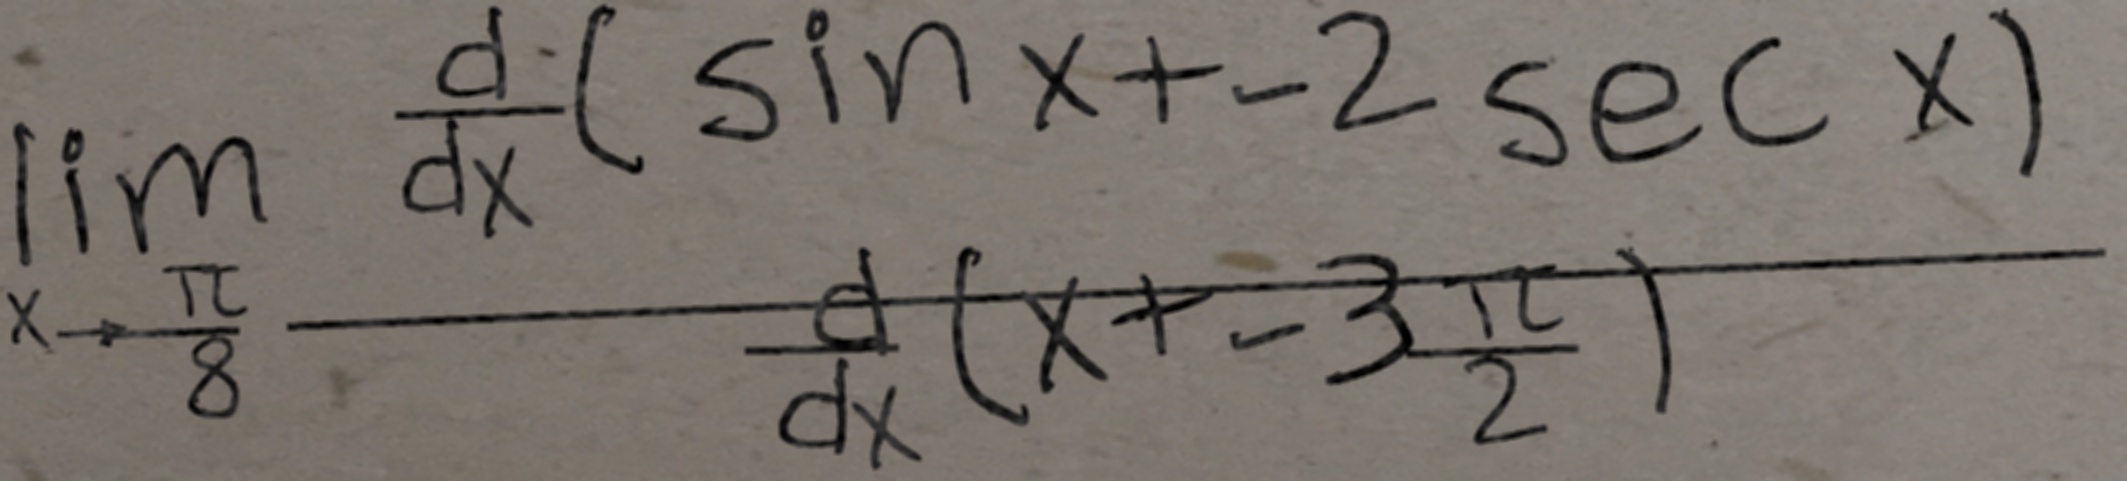 \lim_{x \to \frac{\pi}{8}} \frac{\frac{d}{dx}(\sin x + -2 \sec x)}{\frac{d}{dx}(x + -3\frac{\pi}{2})}